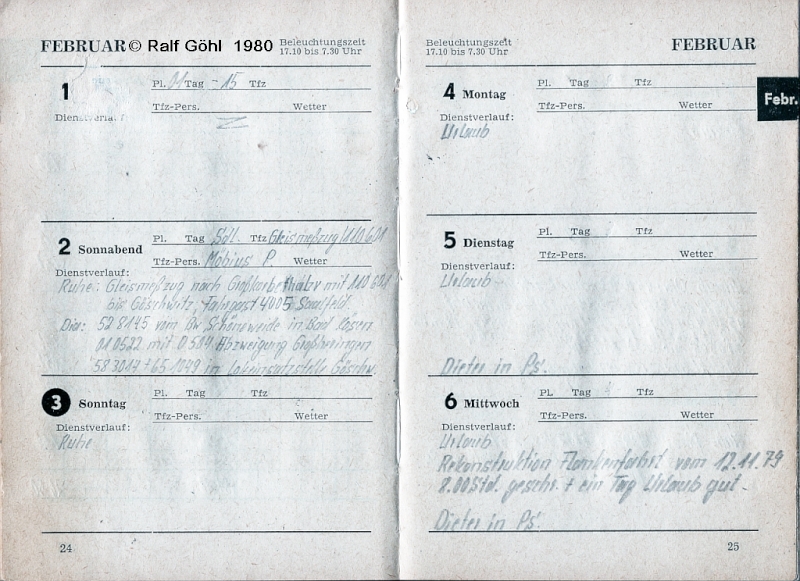 FEBRUAR © Ralf Göhl 1980 Beleuchtungszeit
17.10 bis 7.30 Uhr
1 Pl. 01 Tag - 15 Tfz
Tfz-Pers. Wetter
Dienstverlauf:
2 Sonnabend Pl. Tag Sdl. Tfz Gleismeßzug 110 601
Tfz-Pers. Möbius P. Wetter
Dienstverlauf:
Ruhe: Gleismeßzug nach mit 110 601
bis Göschwitz, 4005 Saalfeld.
Dia: 52 8145 vom Bw Schöneweide in Bad Kösen
01 0522 mit D 504 Abzweigung Großheringen
58 3017 + 65 1049 in Göschw.
3 Sonntag Pl. Tag Tfz
Tfz-Pers. Wetter
Dienstverlauf:
Ruhe
24
Beleuchtungszeit
17.10 bis 7.30 Uhr FEBRUAR
Febr.
4 Montag Pl. Tag Tfz
Tfz-Pers. Wetter
Dienstverlauf:
Urlaub
5 Dienstag Pl. Tag Tfz
Tfz-Pers. Wetter
Dienstverlauf:
Urlaub
Dieter in Ps.
6 Mittwoch Pl. Tag Tfz
Tfz-Pers. Wetter
Dienstverlauf:
Urlaub
Rekonstruktion Flankenfahrt vom 12.11.79
8.00 Std. geschr. + ein Tag Urlaub gut.
Dieter in Ps.
25